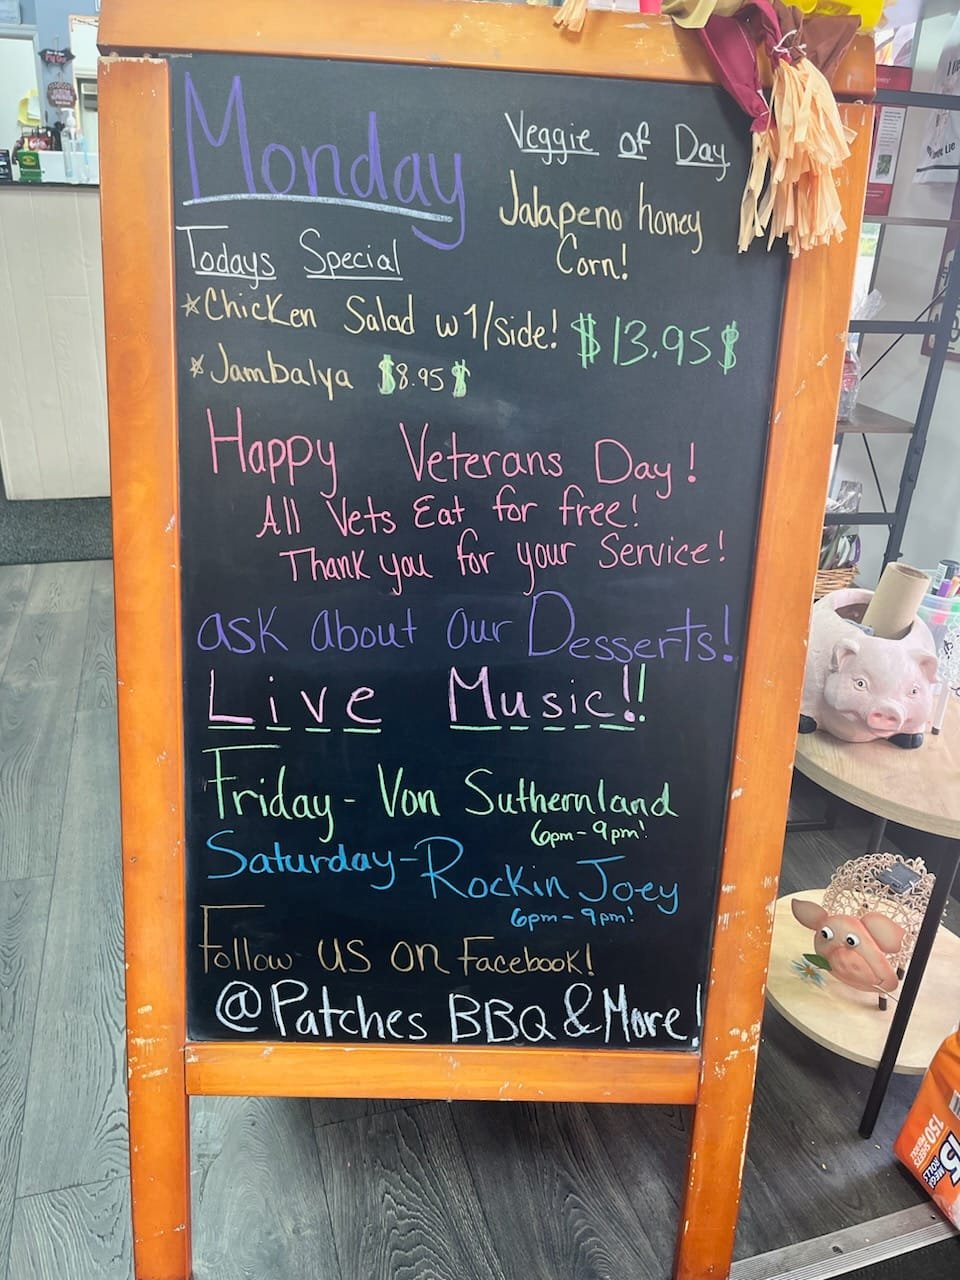 Monday
Veggie of Day
Jalapeno honey
Corn!
Todays Special
*Chicken Salad w 1/side! $13.95$
*Jambalya $8.95$
Happy Veterans Day!
All Vets Eat for free!
Thank you for your Service!
ask about our Desserts!
Live Music!!
Friday - Von Suthernland
6pm - 9pm!
Saturday - Rockin Joey
6pm - 9pm!
Follow us on Facebook!
@Patches BBQ & More!
150 SHEETS
15
MEGA
ROLLS